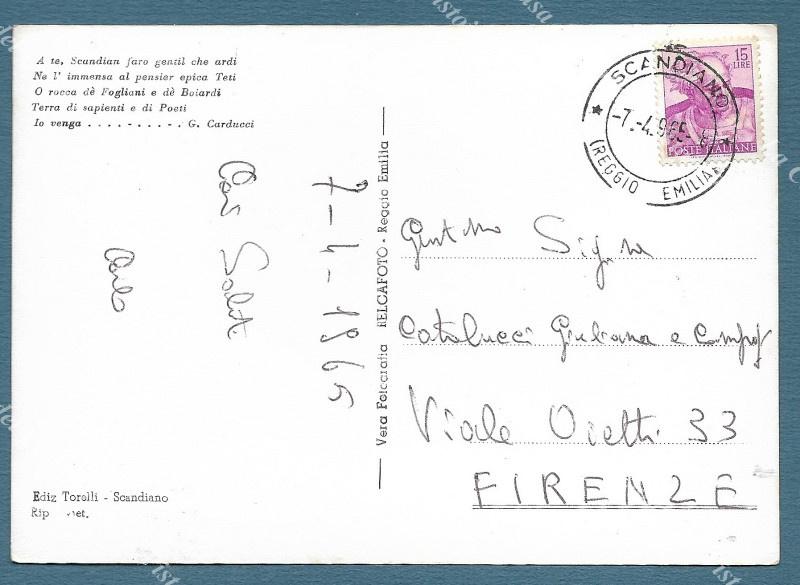 A te, Scandian faro gentil che ardi
Ne l' immensa al pensier epica Teti
O rocca dè Fogliani e dè Boiardi
Terra di sapienti e di Poeti
Io venga . . . . - . . - . . G. Carducci
15
LIRE
POSTE ITALIANE
SCANDIANO
-7.-4.965
(REGGIO EMILIA)
7-4-1965
Cari Saluti
Carlo
Vera Fotografia BELCAFOTO - Reggio Emilia
Gent.ma Sig.ra
Catalucci Giuliana e
Viale Ojetti 33
FIRENZE
Ediz Torelli - Scandiano
Rip